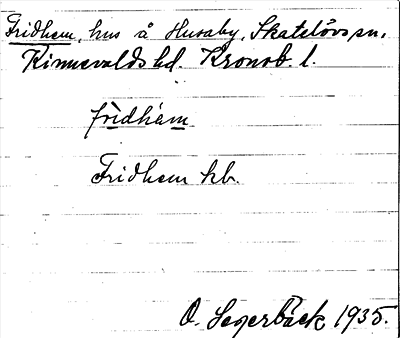 Fridhem, hus å Husaby, Skatelövs sn,
Kinnevalds hd. Kronob. l.
fridhem
Fridhem kb.
O. Segerbäck 1935.